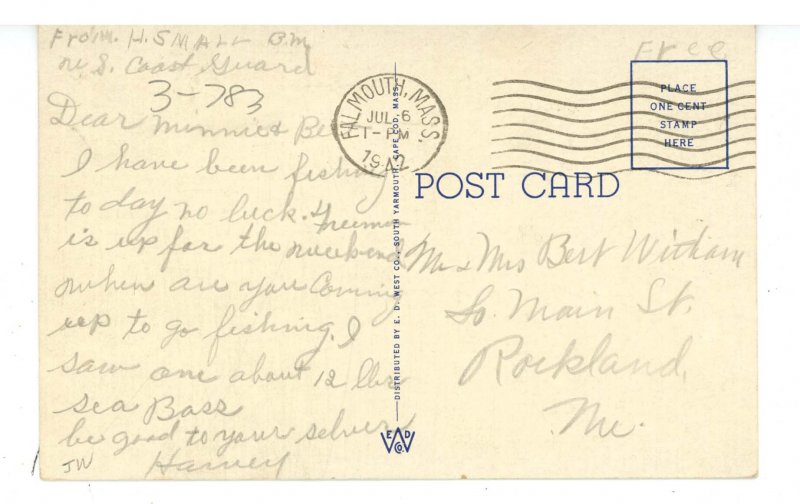 From. H. SMALL B.M.
U. S. Coast Guard
3-783
Dear Minnie & Be
I have been fishing
to day no luck. Freeman
is up for the weekend
when are you Coming
up to go fishing. I
saw one about 12 lbs
sea Bass
be good to your selves
Harvey
JW
FALMOUTH, MASS.
JUL 6
1-PM
1942
Free
PLACE
ONE CENT
STAMP
HERE
POST CARD
DISTRIBUTED BY E. D. WEST CO., SOUTH YARMOUTH, CAPE COD, MASS.
E D
W
CO.
Mr & Mrs Bert Witham
So. Main St.
Rockland,
Me.